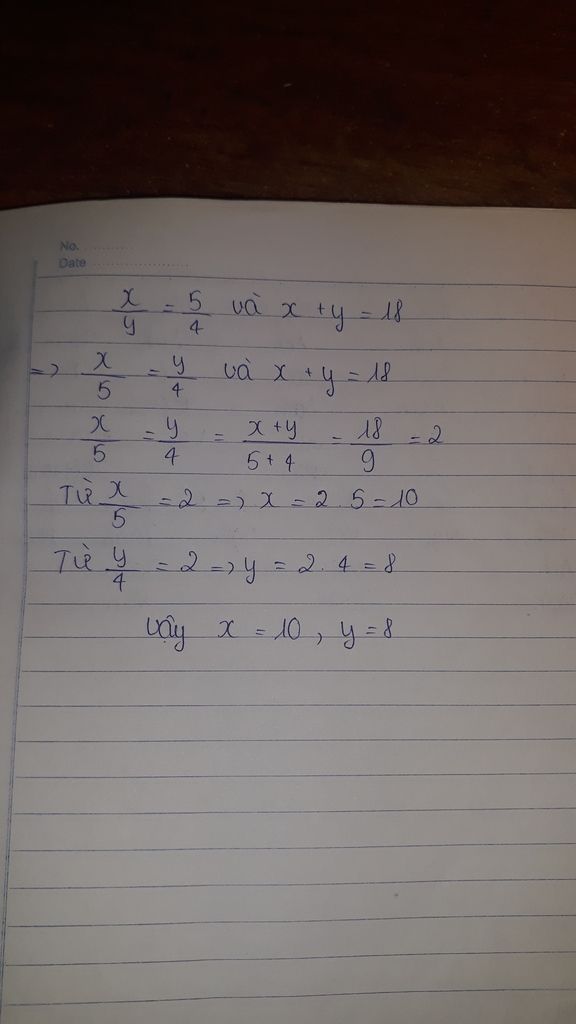 No. ............
Date ........................
x/y = 5/4 và x + y = 18
=> x/5 = y/4 và x + y = 18
x/5 = y/4 = x+y/5+4 = 18/9 = 2
Từ x/5 = 2 => x = 2 . 5 = 10
Từ y/4 = 2 => y = 2 . 4 = 8
Vậy x = 10 , y = 8